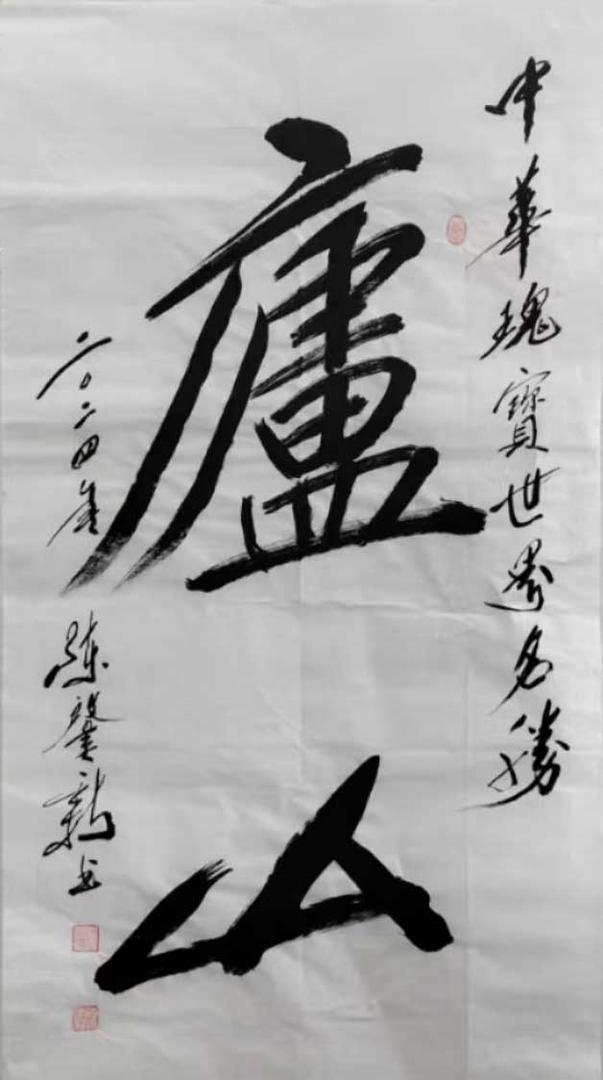 中華瑰寶世界名勝
廬山
二〇二四年
陳馨新书